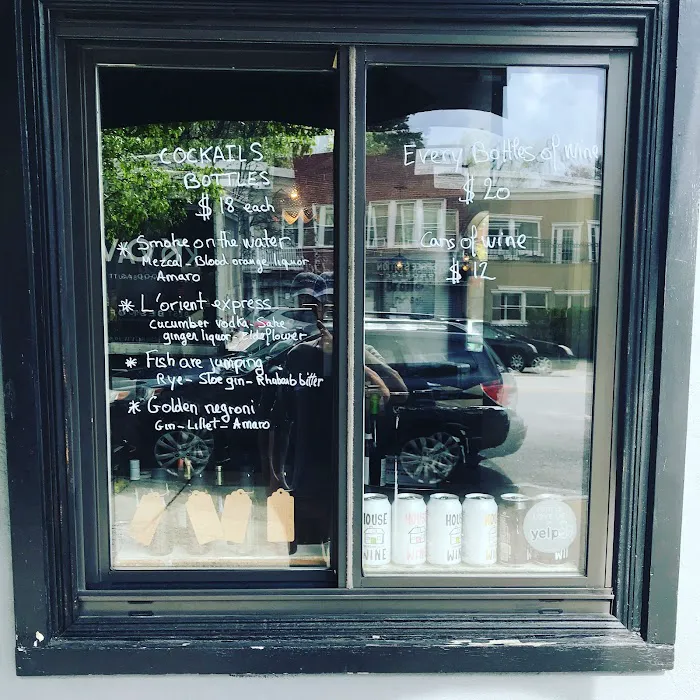 COCKAILS
BOTTLES
$ 18 each
* Smoke on the water
Mezcal - Blood orange liquor
Amaro
* L'orient express
Cucumber vodka - Sake
ginger liquor - elderflower
* Fish are jumping
Rye - Sloe gin - Rhubarb bitter
* Golden negroni
Gin - Lillet - Amaro
Every Bottles of wine
$ 20
Cans of wine
$ 12
HOUSE
WINE
HOUSE
WINE
HOUSE
WINE
yelp